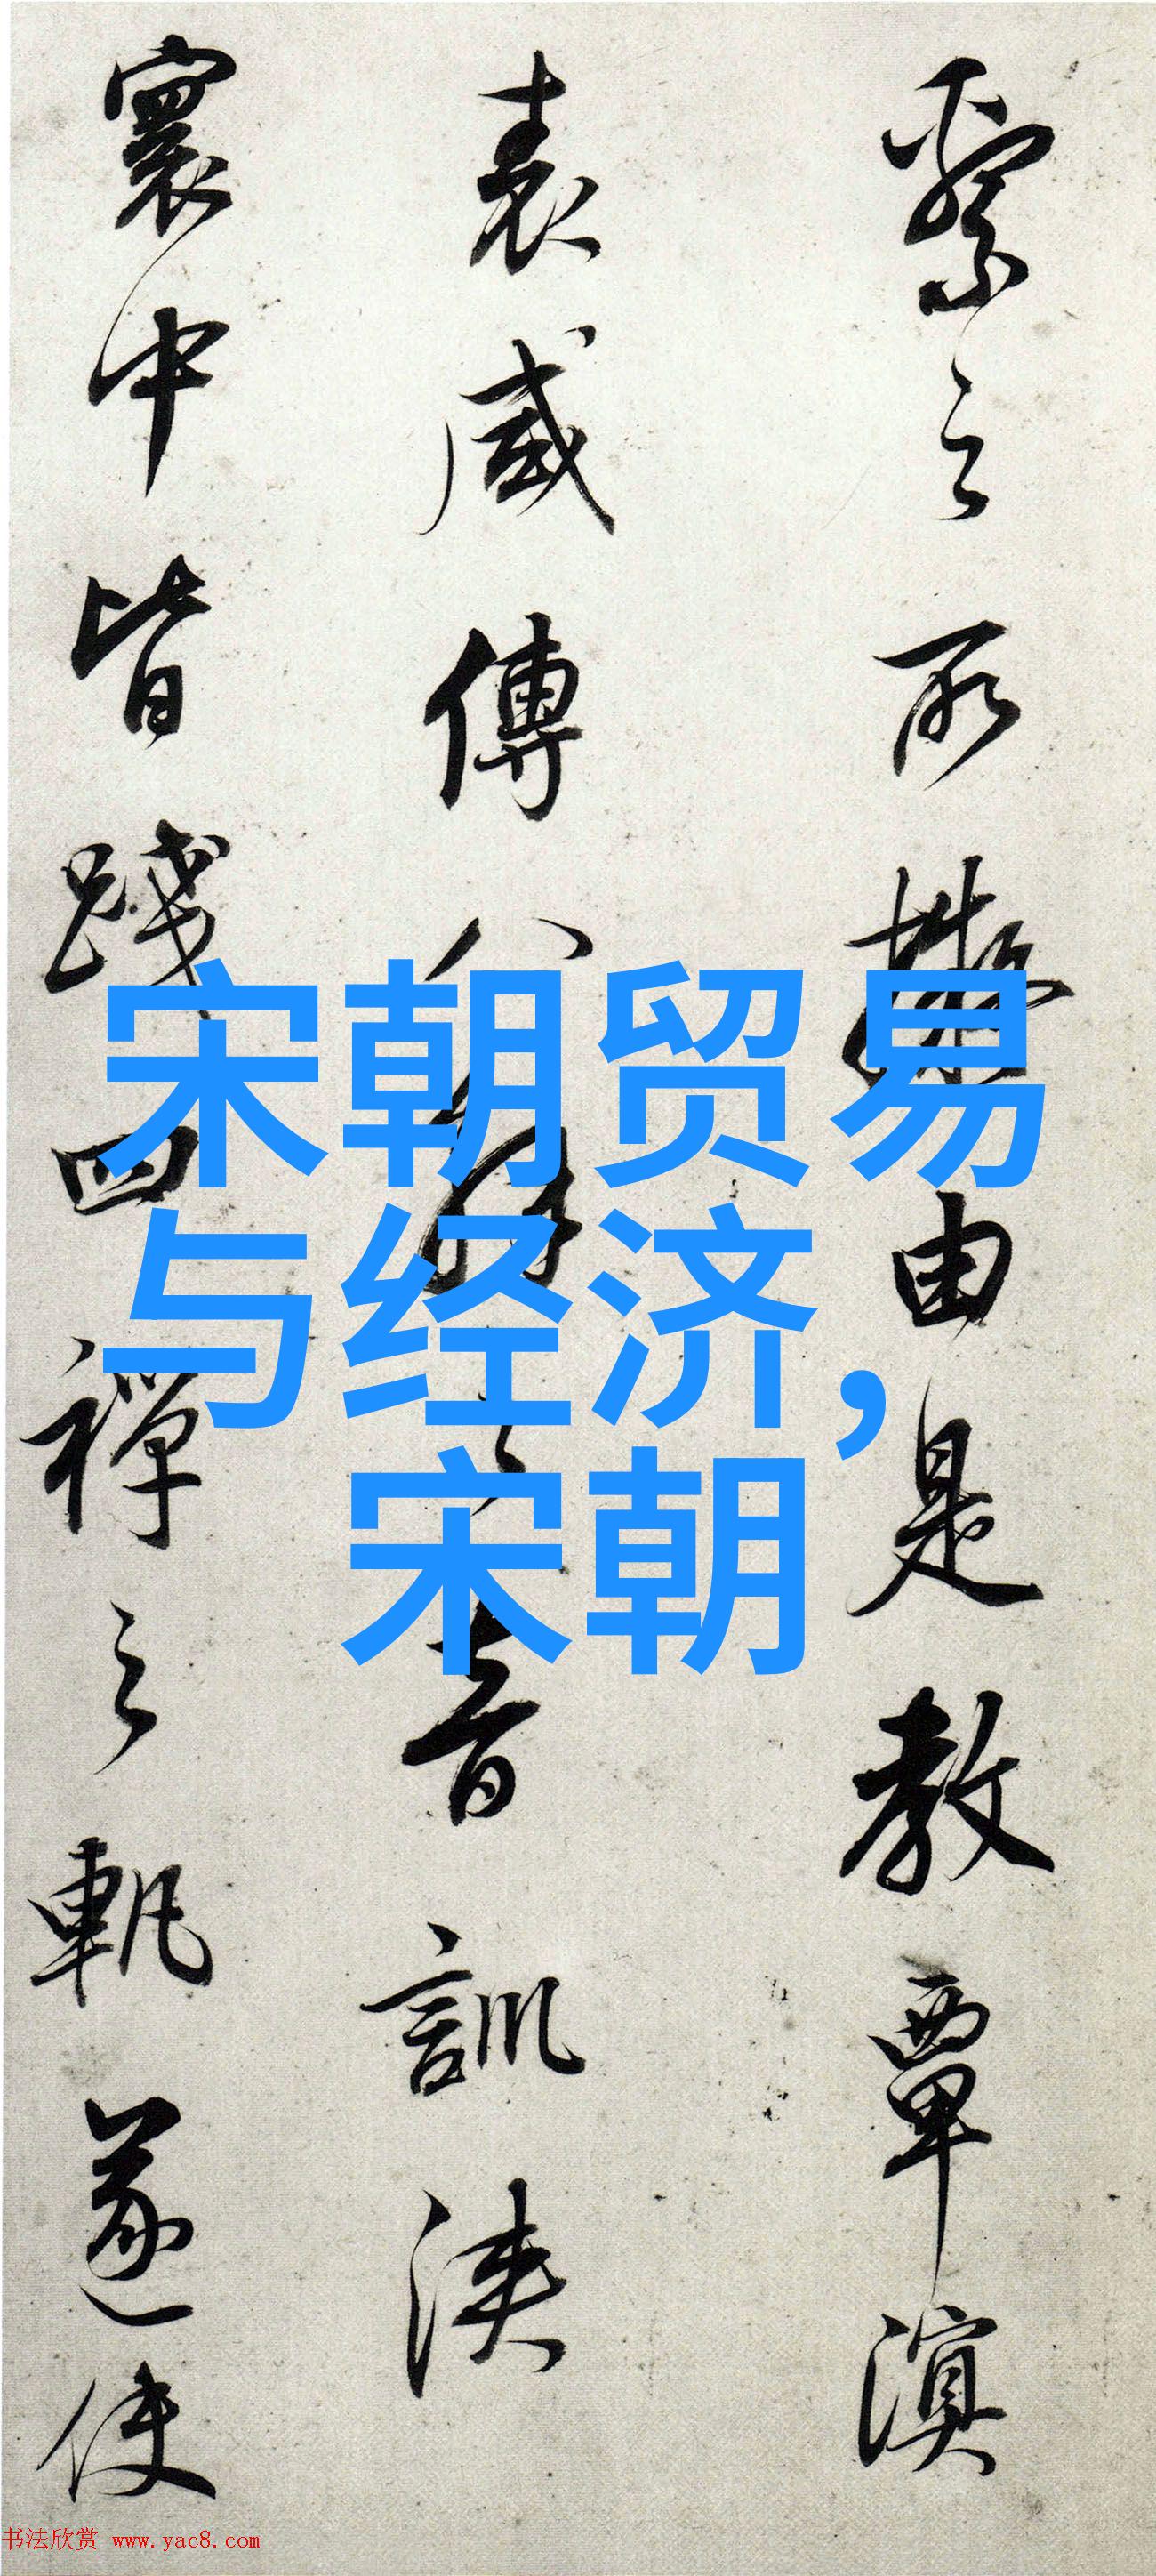 宋朝贸易
与经济，
宋朝
之所由是教覃溟
表咸傳八之音訓浹
寰中皆踐四禪之軌遂使
书法欣赏 www.yac8.com